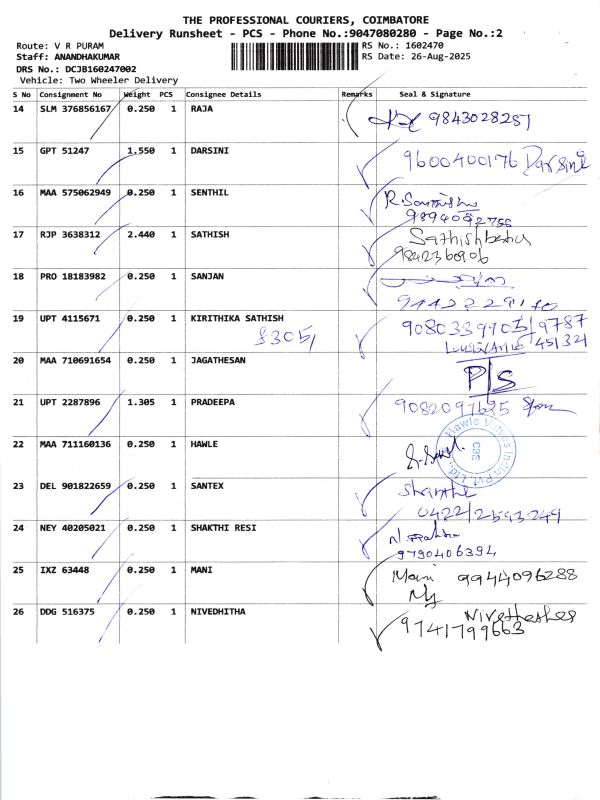 THE PROFESSIONAL COURIERS, COIMBATORE
Delivery Runsheet - PCS - Phone No.:9047080280 - Page No.:2
Route: V R PURAM
Staff: ANANDHAKUMAR
DRS No.: DCJB160247002
Vehicle: Two Wheeler Delivery
RS No.: 1602470
RS Date: 26-Aug-2025
S No Consignment No Weight PCS Consignee Details Remarks Seal & Signature
14 SLM 376856167 0.250 1 RAJA 9843028287
15 GPT 51247 1.550 1 DARSINI 9600400176 Darsini
16 MAA 575062949 0.250 1 SENTHIL
9894092766
17 RJP 3638312 2.440 1 SATHISH
9842360906
18 PRO 18183982 0.250 1 SANJAN
19 UPT 4115671 0.250 1 KIRITHIKA SATHISH
20 MAA 710691654 0.250 1 JAGATHESAN P/S
21 UPT 2287896 1.305 1 PRADEEPA 9082097695
22 MAA 711160136 0.250 1 HAWLE
Hawle Valves India Pvt Ltd.
CBE
23 DEL 901822659 0.250 1 SANTEX Shanthi
0422/2593249
24 NEY 40205021 0.250 1 SHAKTHI RESI
9790406394
25 IXZ 63448 0.250 1 MANI Mani 9944096288
26 DDG 516375 0.250 1 NIVEDHITHA
9741799663